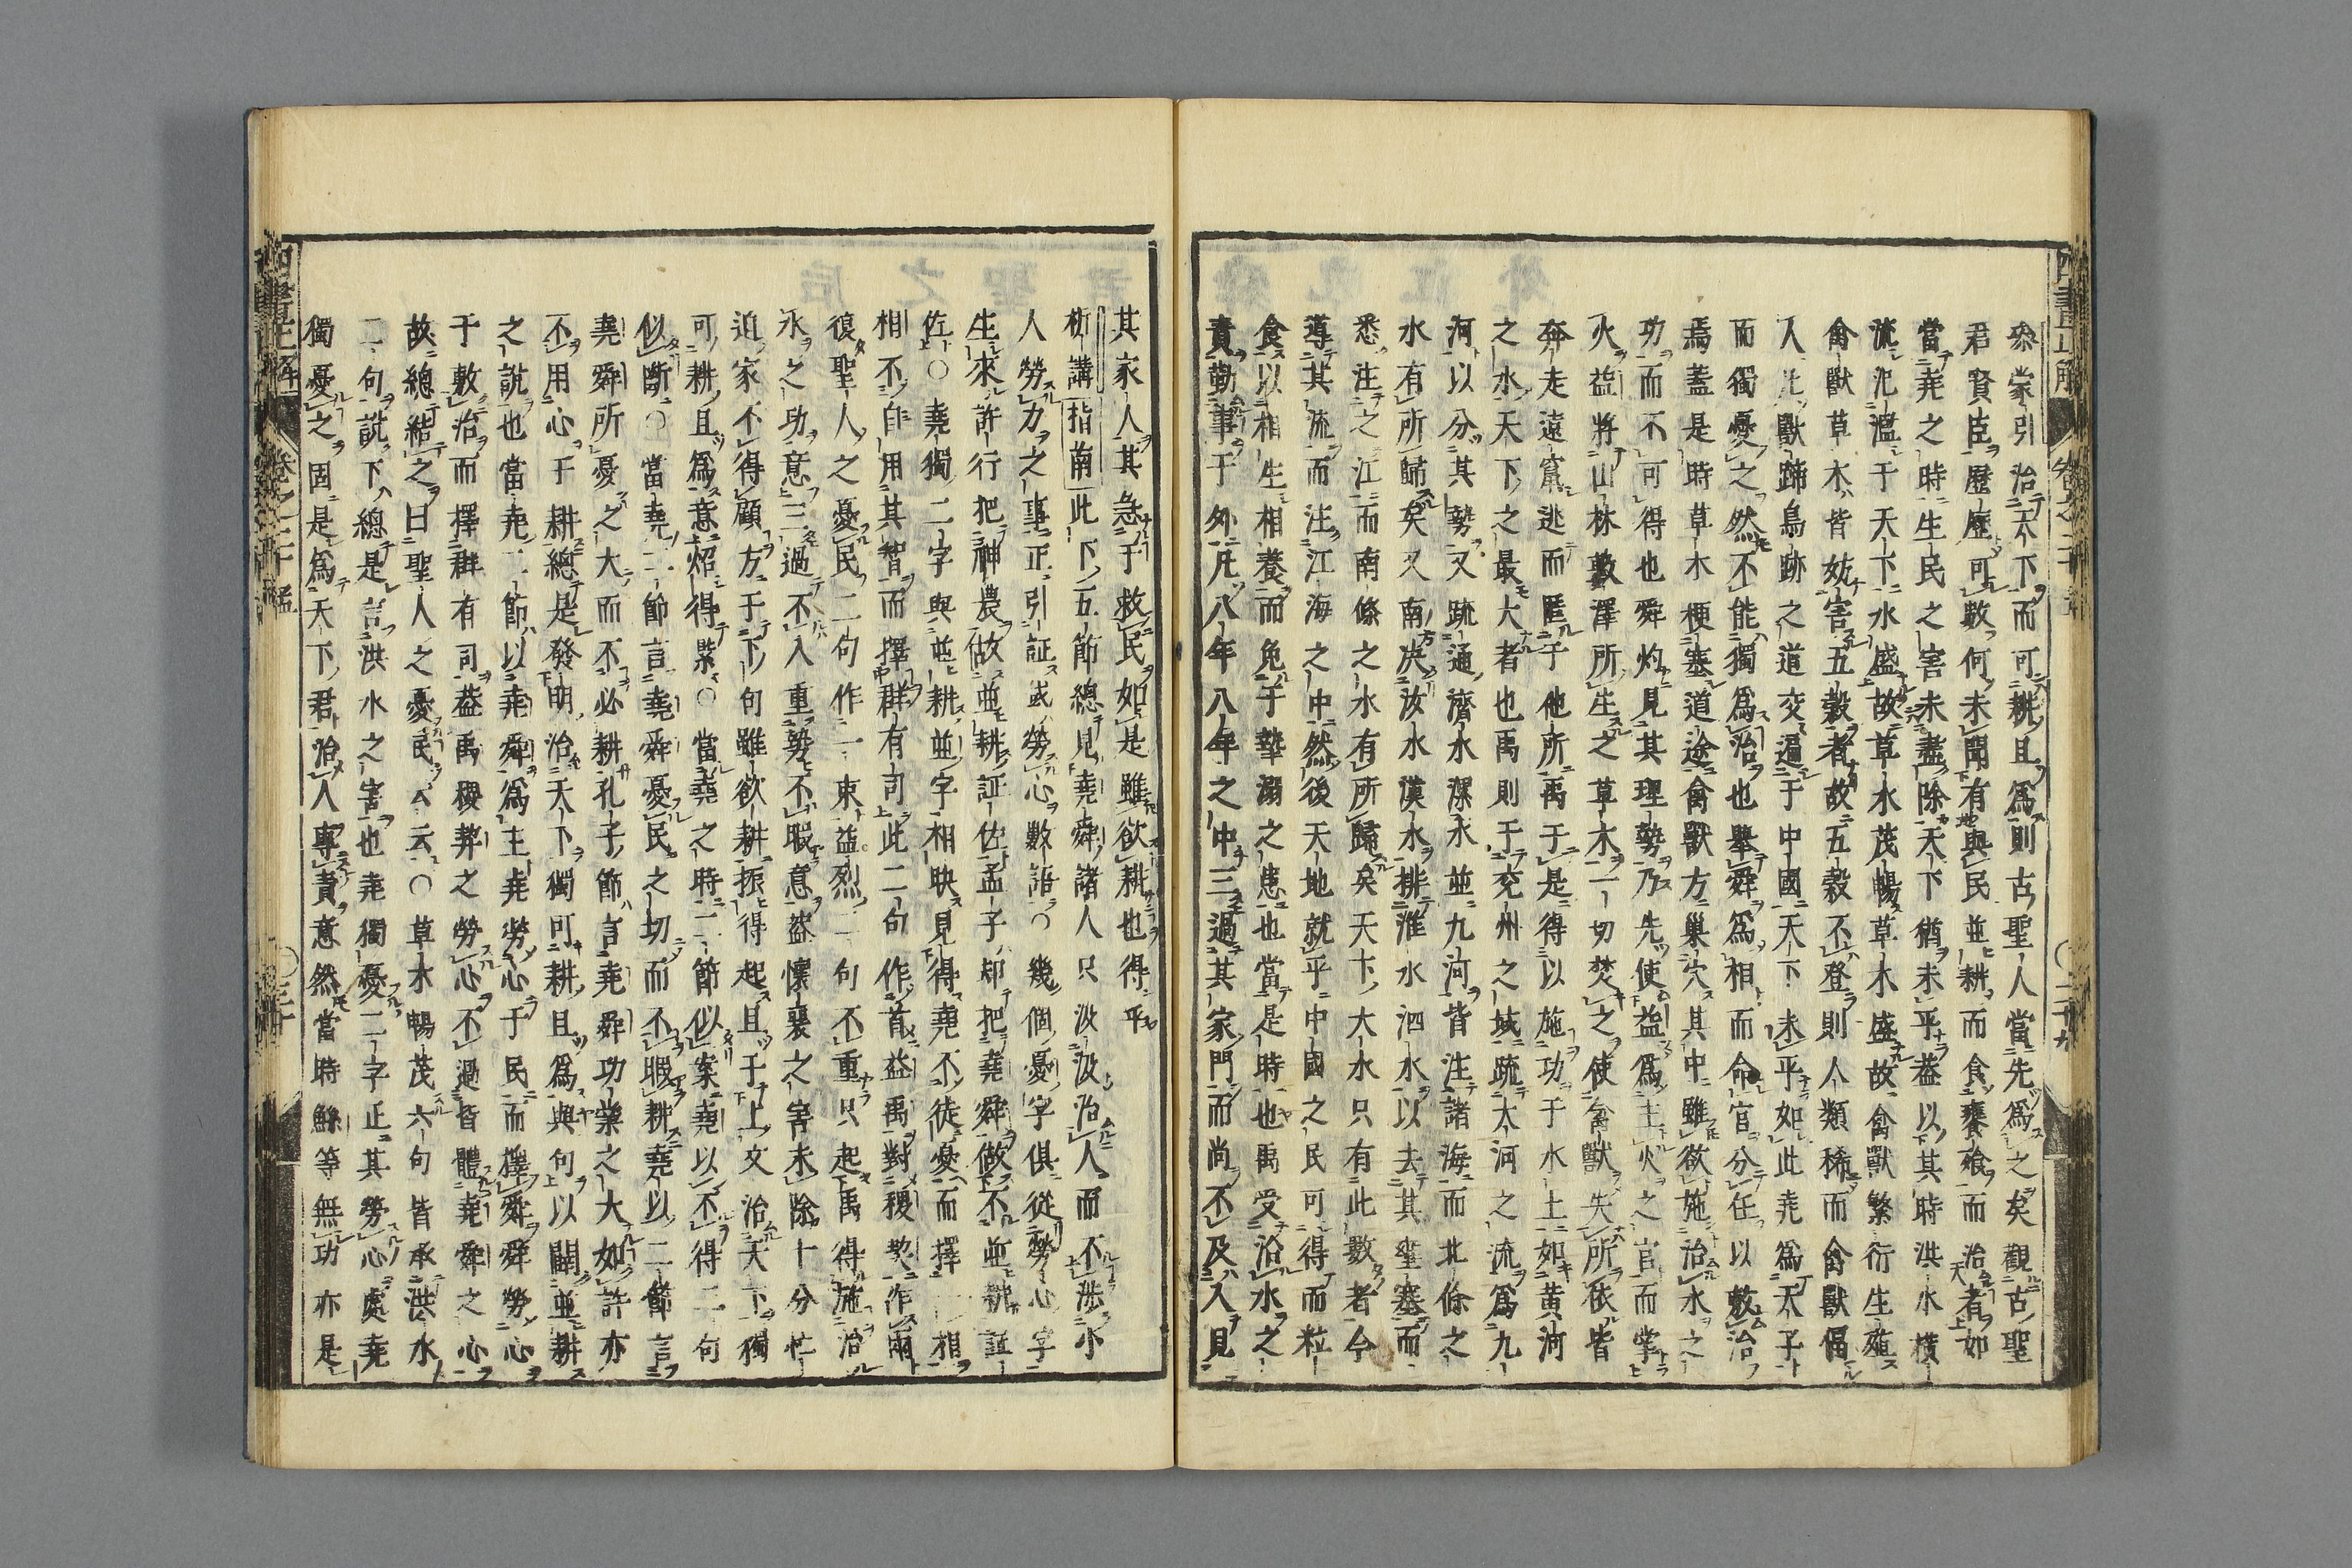 叅蒙引治天下而可耕且爲則古聖人當先爲之矣觀古聖
君賢臣歷歷可數何未聞有與民並耕而食饔飧而治天者如
當堯之時生民之害未盡除天下猶未平蓋以其時洪水橫
流氾濫于天下水盛故草木茂暢草木盛故禽獸繁衍生殖
禽獸草木皆妨害五穀者故五穀不登則人類稀而禽獸偪
人獸蹄鳥跡之道交遍于中國天下未平如此堯爲天子
而獨憂之然不能獨爲治也舉舜爲相而命官分任以敷治
焉蓋是時草木梗塞道途禽獸方巢穴其中雖欲施治水之
功而不可得也舜灼見其理勢乃先使益爲主火之官而掌
火益將山林藪澤所生之草木一切焚之使禽獸失所依皆
奔走遠竄逃而匿于他所禹于是得以施功于水土如黃河
之水天下之最大者也禹則于兗州之域疏大河之流爲九
河以分其勢又疏通濟水漯水並九河皆注諸海而北條之
水有所歸矣又南决汝水漢水排淮水泗水以去其壅塞而
悉注之江而南條之水有所歸矣天下大水只有此數者今
導其流而注江海之中然後天地就平中國之民可得而粒
食以相生相養而免于墊溺之患也當是時也禹受治水之
責勤事于外凡八年八年之中三過其家門而尚不及入見
其家人其急于救民如是雖欲耕也得乎
析講指南此下五節總見堯舜諸人只汲汲治人而不涉小
人勞力之事正引証或勞心數語○幾個憂字俱從勞心字
生來許行把神農做並耕証佐孟子却把堯舜做不並耕証
佐○堯獨二字與並耕並字相映見得堯不徒憂而擇一相
相不自用其智而擇群有司此二句作首益禹對稷契作兩
復聖人之憂民二句作一束益烈二句不重只起禹得施治
水之功意三過不入重勢不暇意盖懷襄之害未除十分忙
迫家不得顧方于下句雖欲耕振得起且于上文治天下獨
可耕且爲意炤得緊○當堯之時二節似案堯以不得二句
似斷○當堯二節言堯舜憂民之切而不暇耕堯以二節言
堯舜所憂之大而不必耕孔子節言堯舜功業之大如許亦
不用心于耕總是發明治天下獨可耕且爲與句以闢並耕
之說也當堯二節以堯舜爲主堯勞心于民而擇舜舜勞心
于敷治而擇群有司益禹稷契之勞心不過皆體堯舜之心
故總結之曰聖人之憂民云云○草水暢茂六句皆承洪水
二句說下總是言洪水之害也堯獨憂二字正其勞心處堯
獨憂之固是爲天下君治人專責意然當時鯀等無功亦是
四書正解
卷之二十
孟